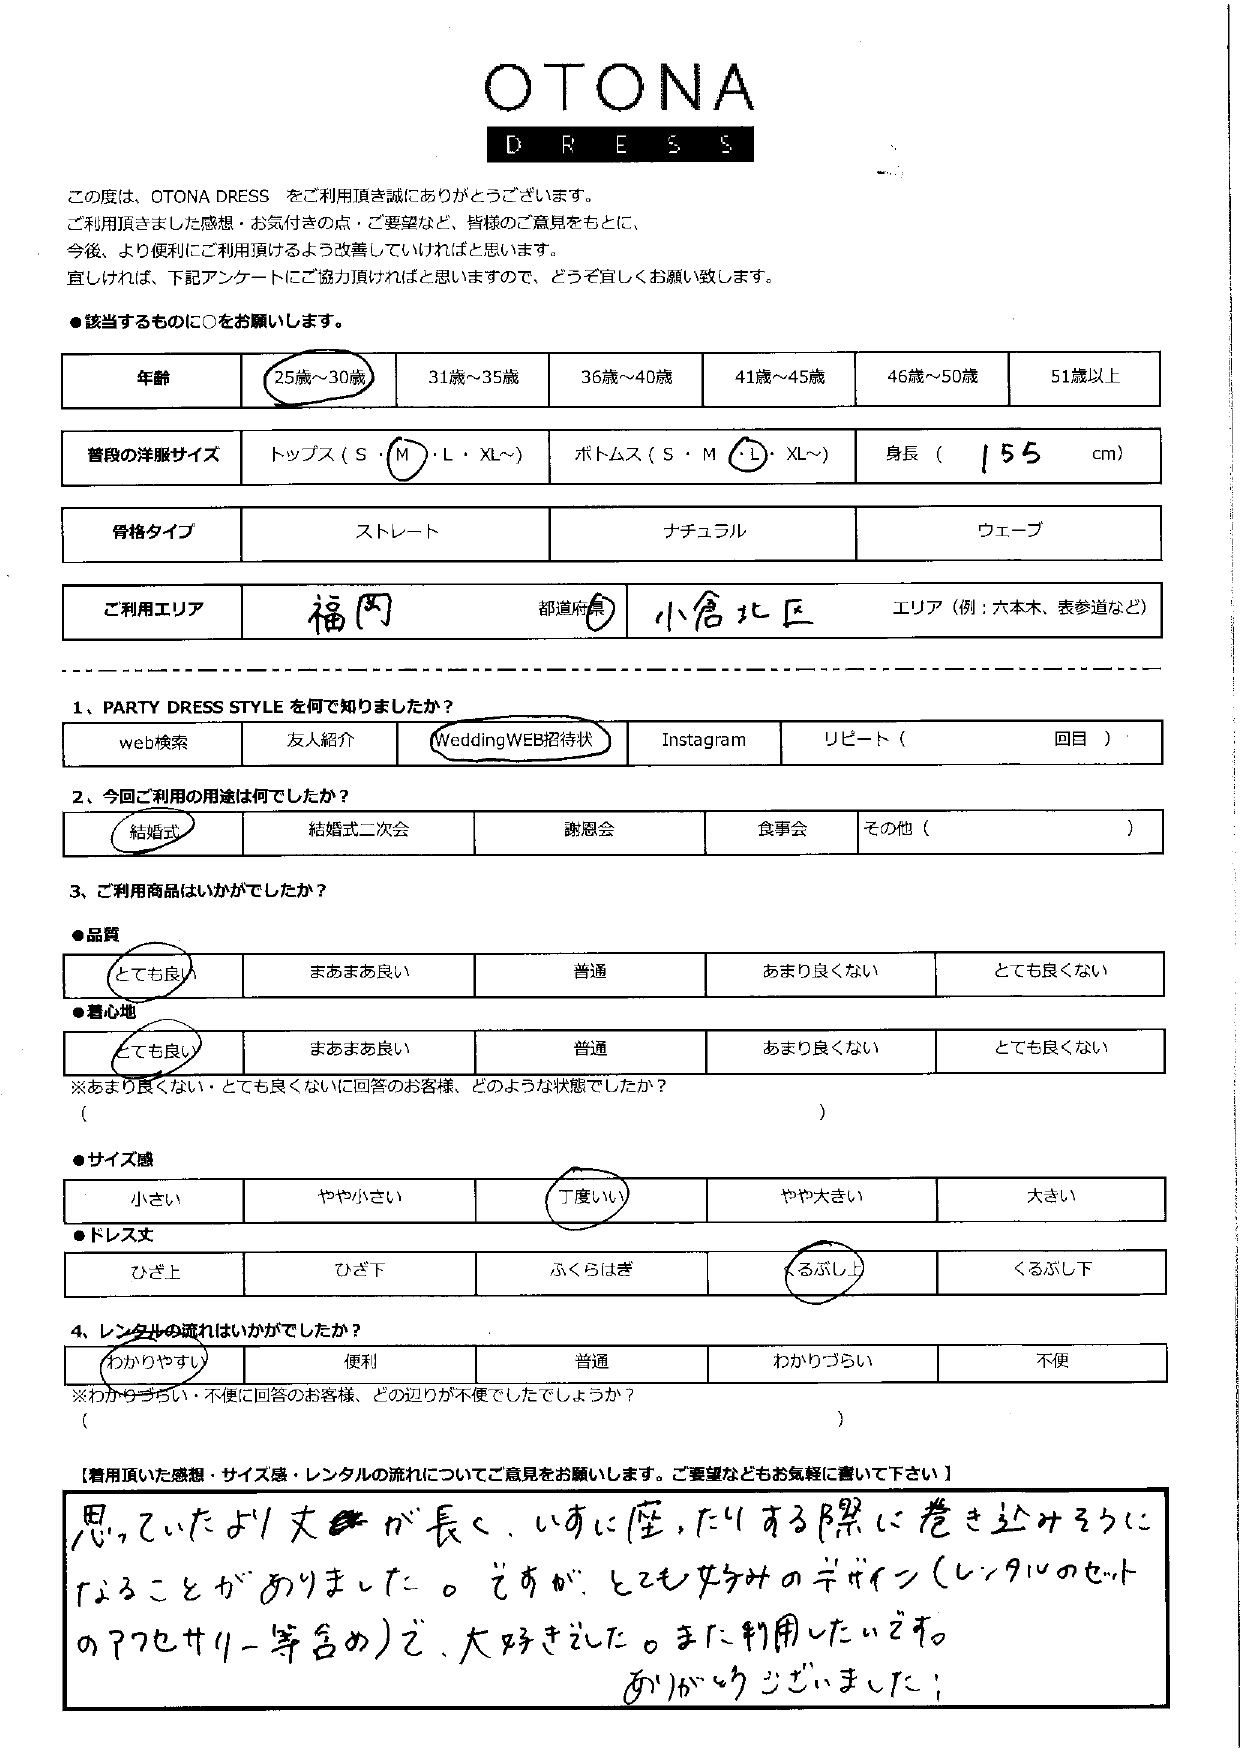 OTONA
DRESS
この度は、OTONA DRESS をご利用頂き誠にありがとうございます。
ご利用頂きました感想・お気付きの点・ご要望など、皆様のご意見をもとに、
今後、より便利にご利用頂けるよう改善していければと思います。
宜しければ、下記アンケートにご協力頂ければと思いますので、どうぞ宜しくお願い致します。
●該当するものに○をお願いします。
年齢 25歳～30歳 31歳～35歳 36歳～40歳 41歳～45歳 46歳～50歳 51歳以上
普段の洋服サイズ トップス ( S ・ M ・ L ・ XL～) ボトムス ( S ・ M ・ L ・ XL～) 身長 ( 155 cm)
骨格タイプ ストレート ナチュラル ウェーブ
ご利用エリア 福岡 都道府県 小倉北区 エリア（例：六本木、表参道など）
1、PARTY DRESS STYLE を何で知りましたか？
web検索 友人紹介 WeddingWEB招待状 Instagram リピート ( 回目 )
2、今回ご利用の用途は何でしたか？
結婚式 結婚式二次会 謝恩会 食事会 その他 ( )
3、ご利用商品はいかがでしたか？
●品質
とても良い まあまあ良い 普通 あまり良くない とても良くない
●着心地
とても良い まあまあ良い 普通 あまり良くない とても良くない
※あまり良くない・とても良くないに回答のお客様、どのような状態でしたか？
( )
●サイズ感
小さい やや小さい 丁度いい やや大きい 大きい
●ドレス丈
ひざ上 ひざ下 ふくらはぎ くるぶし上 くるぶし下
4、レンタルの流れはいかがでしたか？
わかりやすい 便利 普通 わかりづらい 不便
※わかりづらい・不便に回答のお客様、どの辺りが不便でしたでしょうか？
( )
【着用頂いた感想・サイズ感・レンタルの流れについてご意見をお願いします。ご要望などもお気軽に書いて下さい】
思っていたより丈が長く、いすに座ったりする際に巻き込みそうに
なることがありました。ですが、とても好みのデザイン(レンタルのセット
のアクセサリー等含め)で、大好きでした。また利用したいです。
ありがとうございました!